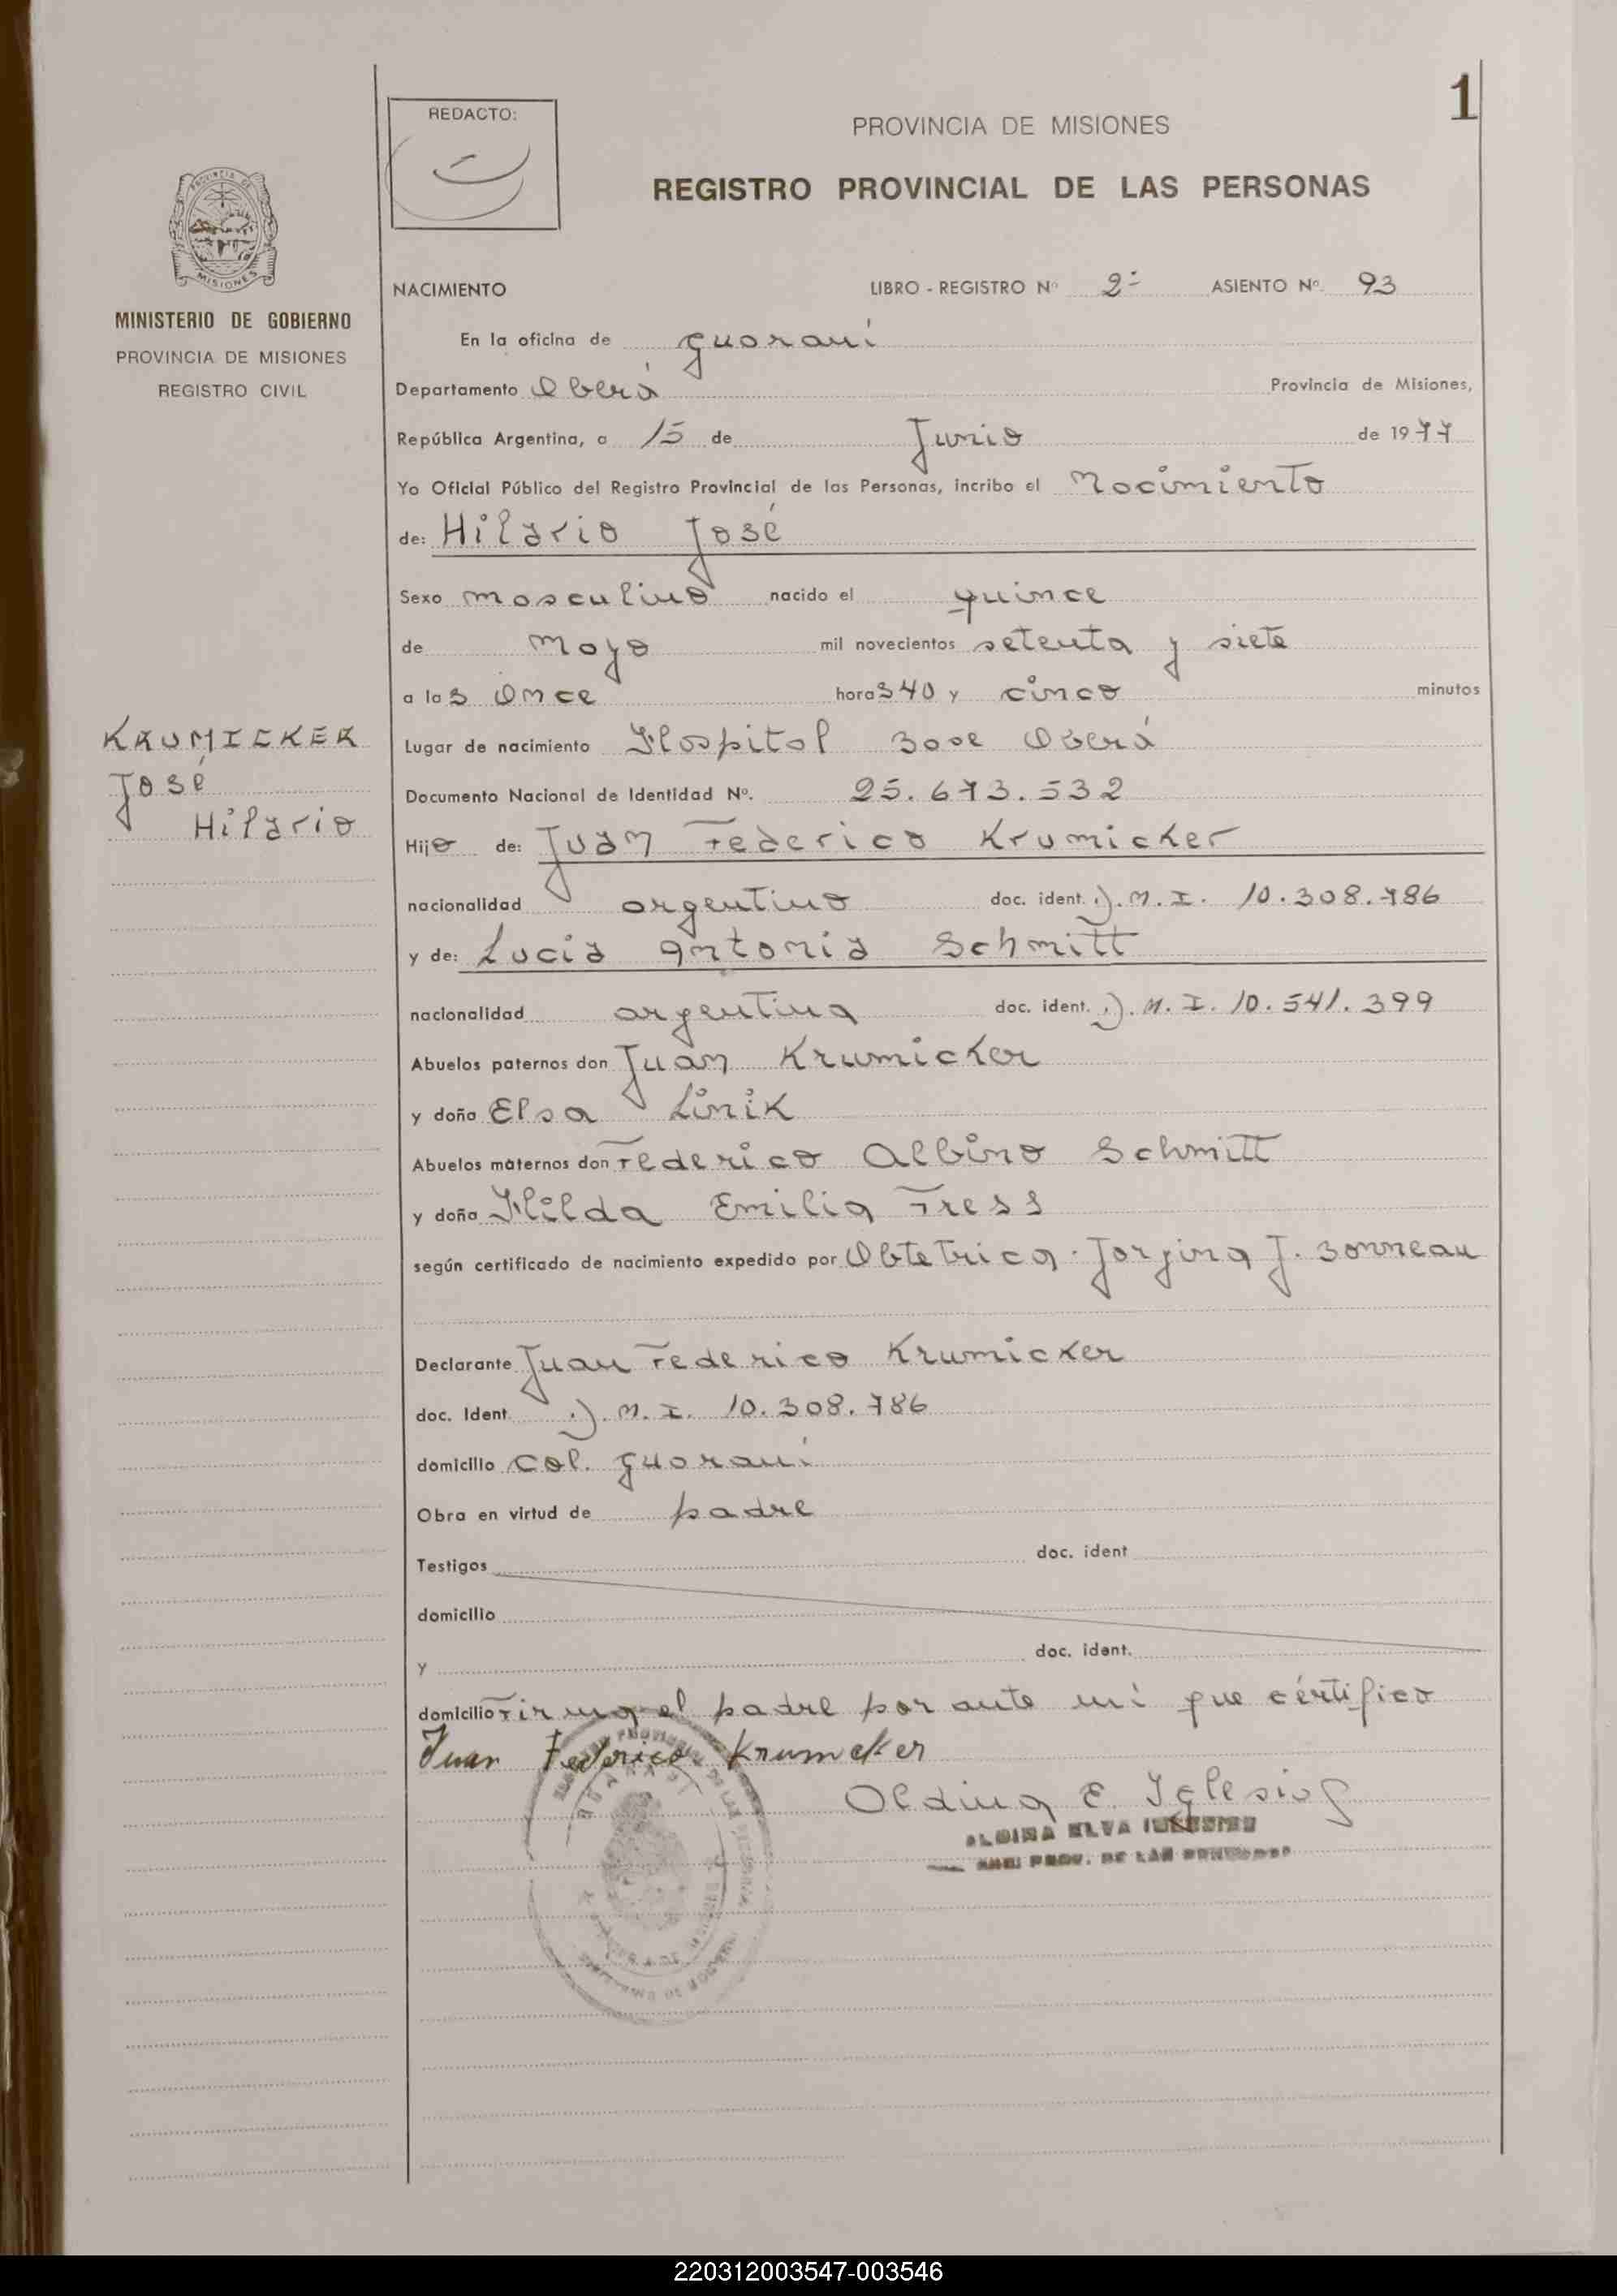 1
REDACTO:
PROVINCIA DE MISIONES
REGISTRO PROVINCIAL DE LAS PERSONAS
MINISTERIO DE GOBIERNO
PROVINCIA DE MISIONES
REGISTRO CIVIL
NACIMIENTO LIBRO - REGISTRO Nº 2º ASIENTO Nº 93
En la oficina de Guaraní
Departamento Oberá Provincia de Misiones,
República Argentina, a 15 de Junio de 1977
Yo Oficial Público del Registro Provincial de las Personas, incribo el Nacimiento
de: Hilario José
Sexo masculino nacido el quince
de Mayo mil novecientos setenta y siete
a las Once horas 40 y cinco minutos
KRUMICKER
José
Hilario
Lugar de nacimiento Hospital Base Oberá
Documento Nacional de Identidad Nº. 25.673.532
Hijo de: Juan Federico Krumicker
nacionalidad argentino doc. ident. D.M.I. 10.308.786
y de: Lucia Antonia Schmitt
nacionalidad argentina doc. ident. D.M.I. 10.541.399
Abuelos paternos don Juan Krumicker
y doña Elsa Linik
Abuelos maternos don Federico Albino Schmitt
y doña Hilda Emilia Fress
según certificado de nacimiento expedido por Obtetrica Jorjina J. Bonneau
Declarante Juan Federico Krumicker
doc. Ident. D.M.I. 10.308.786
domicilio Col. Guaraní
Obra en virtud de padre
Testigos doc. ident
domicilio
y doc. ident.
domicilio Firma el padre por ante mí que cértifico
Juan Federico Krumcker
Aldina E. Iglesias
ELVA
PROV. DE LAS
220312003547-003546